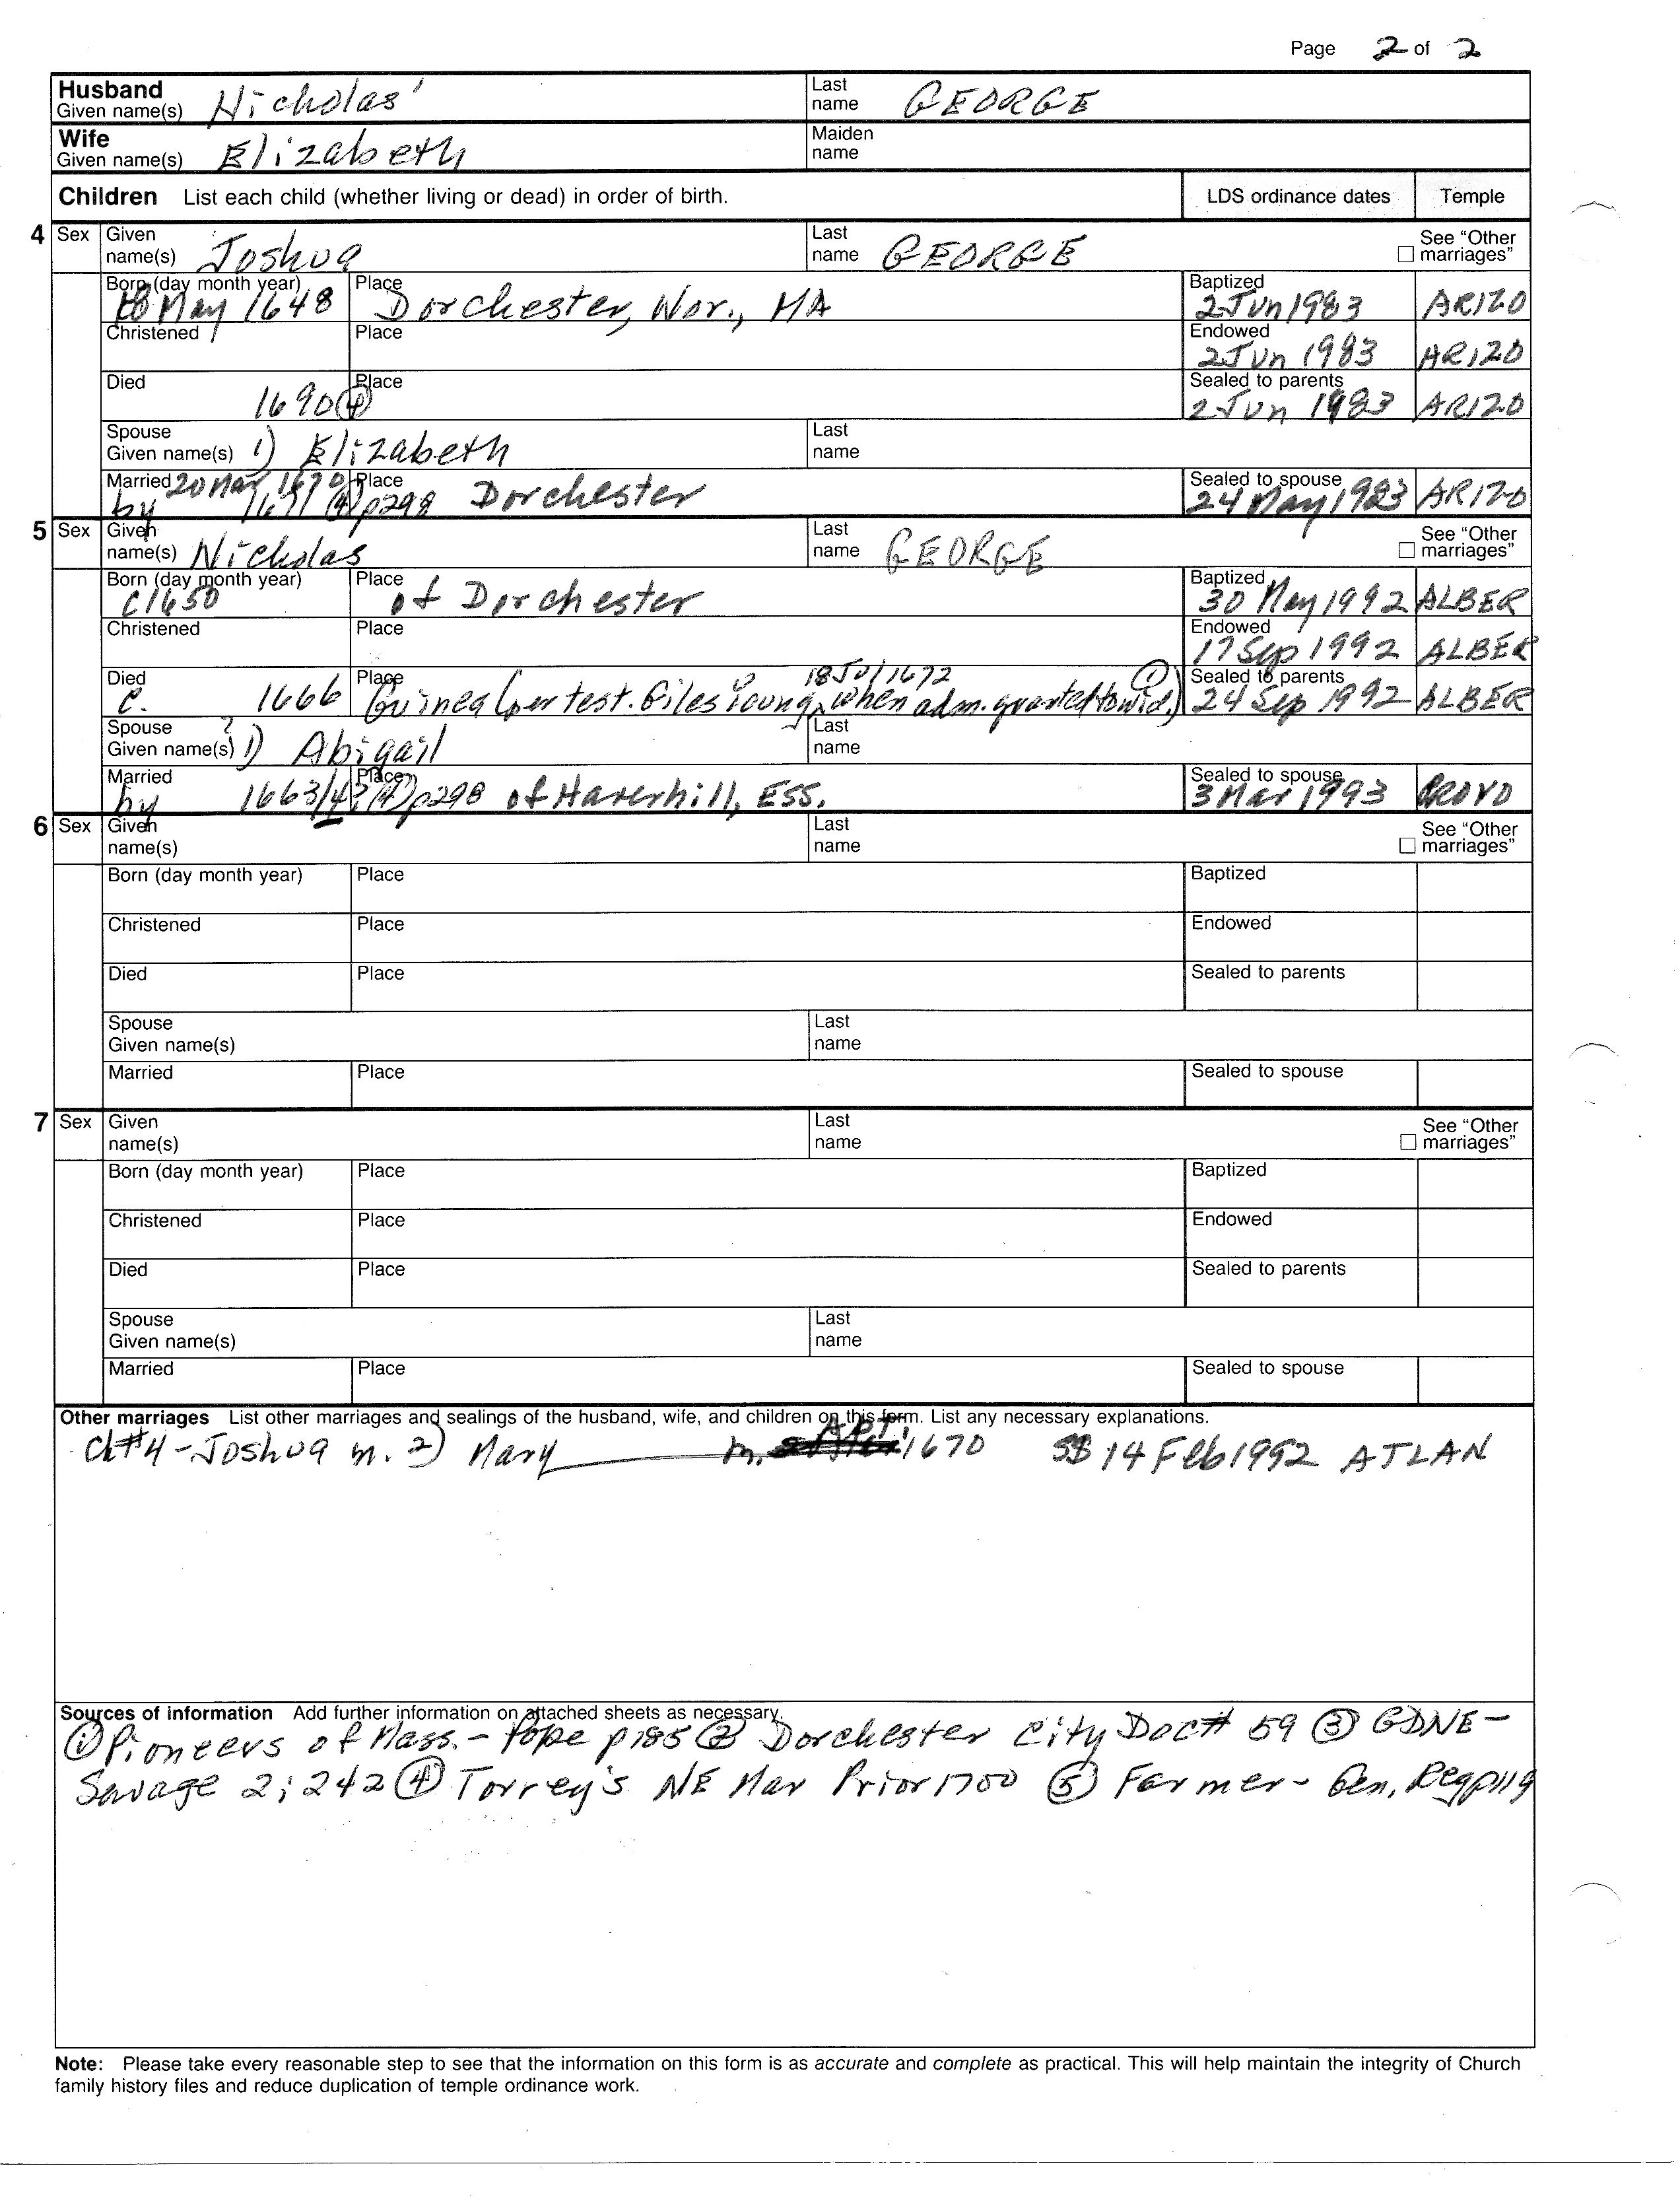 Page 2 of 2
Husband
Given name(s) Nicholas
Last name GEORGE
Wife
Given name(s) Elizabeth
Maiden name
Children List each child (whether living or dead) in order of birth.
LDS ordinance dates Temple
4 Sex Given name(s) Joshua
Last name GEORGE
See “Other marriages”
Born (day month year) May 1648
Place Dorchester, Nor., MA
Baptized 2 Jun 1983 ARIZO
Christened
Place
Endowed 2 Jun 1983 ARIZO
Died 1690 ④
Place
Sealed to parents 2 Jun 1983 ARIZO
Spouse
Given name(s) 1) Elizabeth
Last name
Married 20 Mar 1670
by 1671 ④ p298
Place Dorchester
Sealed to spouse 24 May 1983 ARIZO
5 Sex Given name(s) Nicholas
Last name GEORGE
See “Other marriages”
Born (day month year) c1650
Place of Dorchester
Baptized 30 May 1992 ALBER
Christened
Place
Endowed 17 Sep 1992 ALBER
18 Jul 1672 ①
Died c. 1666
Place Guinea (per test. Giles Young, when adm. granted to wid.)
Sealed to parents 24 Sep 1992 ALBER
Spouse ?
Given name(s) 1) Abigail
Last name
Married by 1663/4? ④ p298
Place of Haverhill, ESS.
Sealed to spouse 3 Mar 1993 PROVO
6 Sex Given name(s)
Last name
See “Other marriages”
Born (day month year)
Place
Baptized
Christened
Place
Endowed
Died
Place
Sealed to parents
Spouse
Given name(s)
Last name
Married
Place
Sealed to spouse
7 Sex Given name(s)
Last name
See “Other marriages”
Born (day month year)
Place
Baptized
Christened
Place
Endowed
Died
Place
Sealed to parents
Spouse
Given name(s)
Last name
Married
Place
Sealed to spouse
Other marriages List other marriages and sealings of the husband, wife, and children on this form. List any necessary explanations.
Ch#4 - Joshua m. 2) Mary m. 1670 SS 14 Feb 1992 ATLAN
Sources of information Add further information on attached sheets as necessary.
① Pioneers of Mass. - Pope p185 ② Dorchester City Doc# 59 ③ GDNE -
Savage 2; 242 ④ Torrey's NE Mar Prior 1700 ⑤ Farmer - Gen. Reg p119
Note: Please take every reasonable step to see that the information on this form is as accurate and complete as practical. This will help maintain the integrity of Church
family history files and reduce duplication of temple ordinance work.